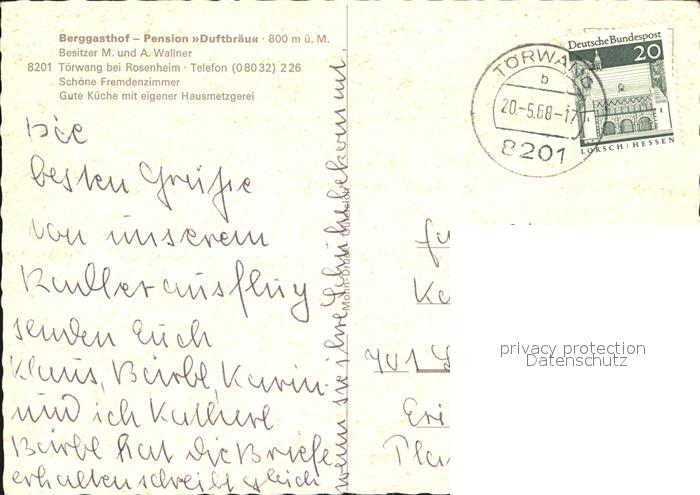 Berggasthof – Pension »Duftbräu« · 800 m ü. M.
Besitzer M. und A. Wallner
8201 Törwang bei Rosenheim · Telefon (0 80 32) 2 26
Schöne Fremdenzimmer
Gute Küche mit eigener Hausmetzgerei
Die
besten Grüße
von unserem
senden Euch
Klaus, Bärbl, Karin
und ich
Bärbl hat die Briefe
erhalten schreibt gleich
wenn sie ihre Schuhe bekommt.
Deutsche Bundespost
20
LORSCH/HESSEN
TÖRWANG
b
20.-5.68-17
8201
701
privacy protection
Datenschutz